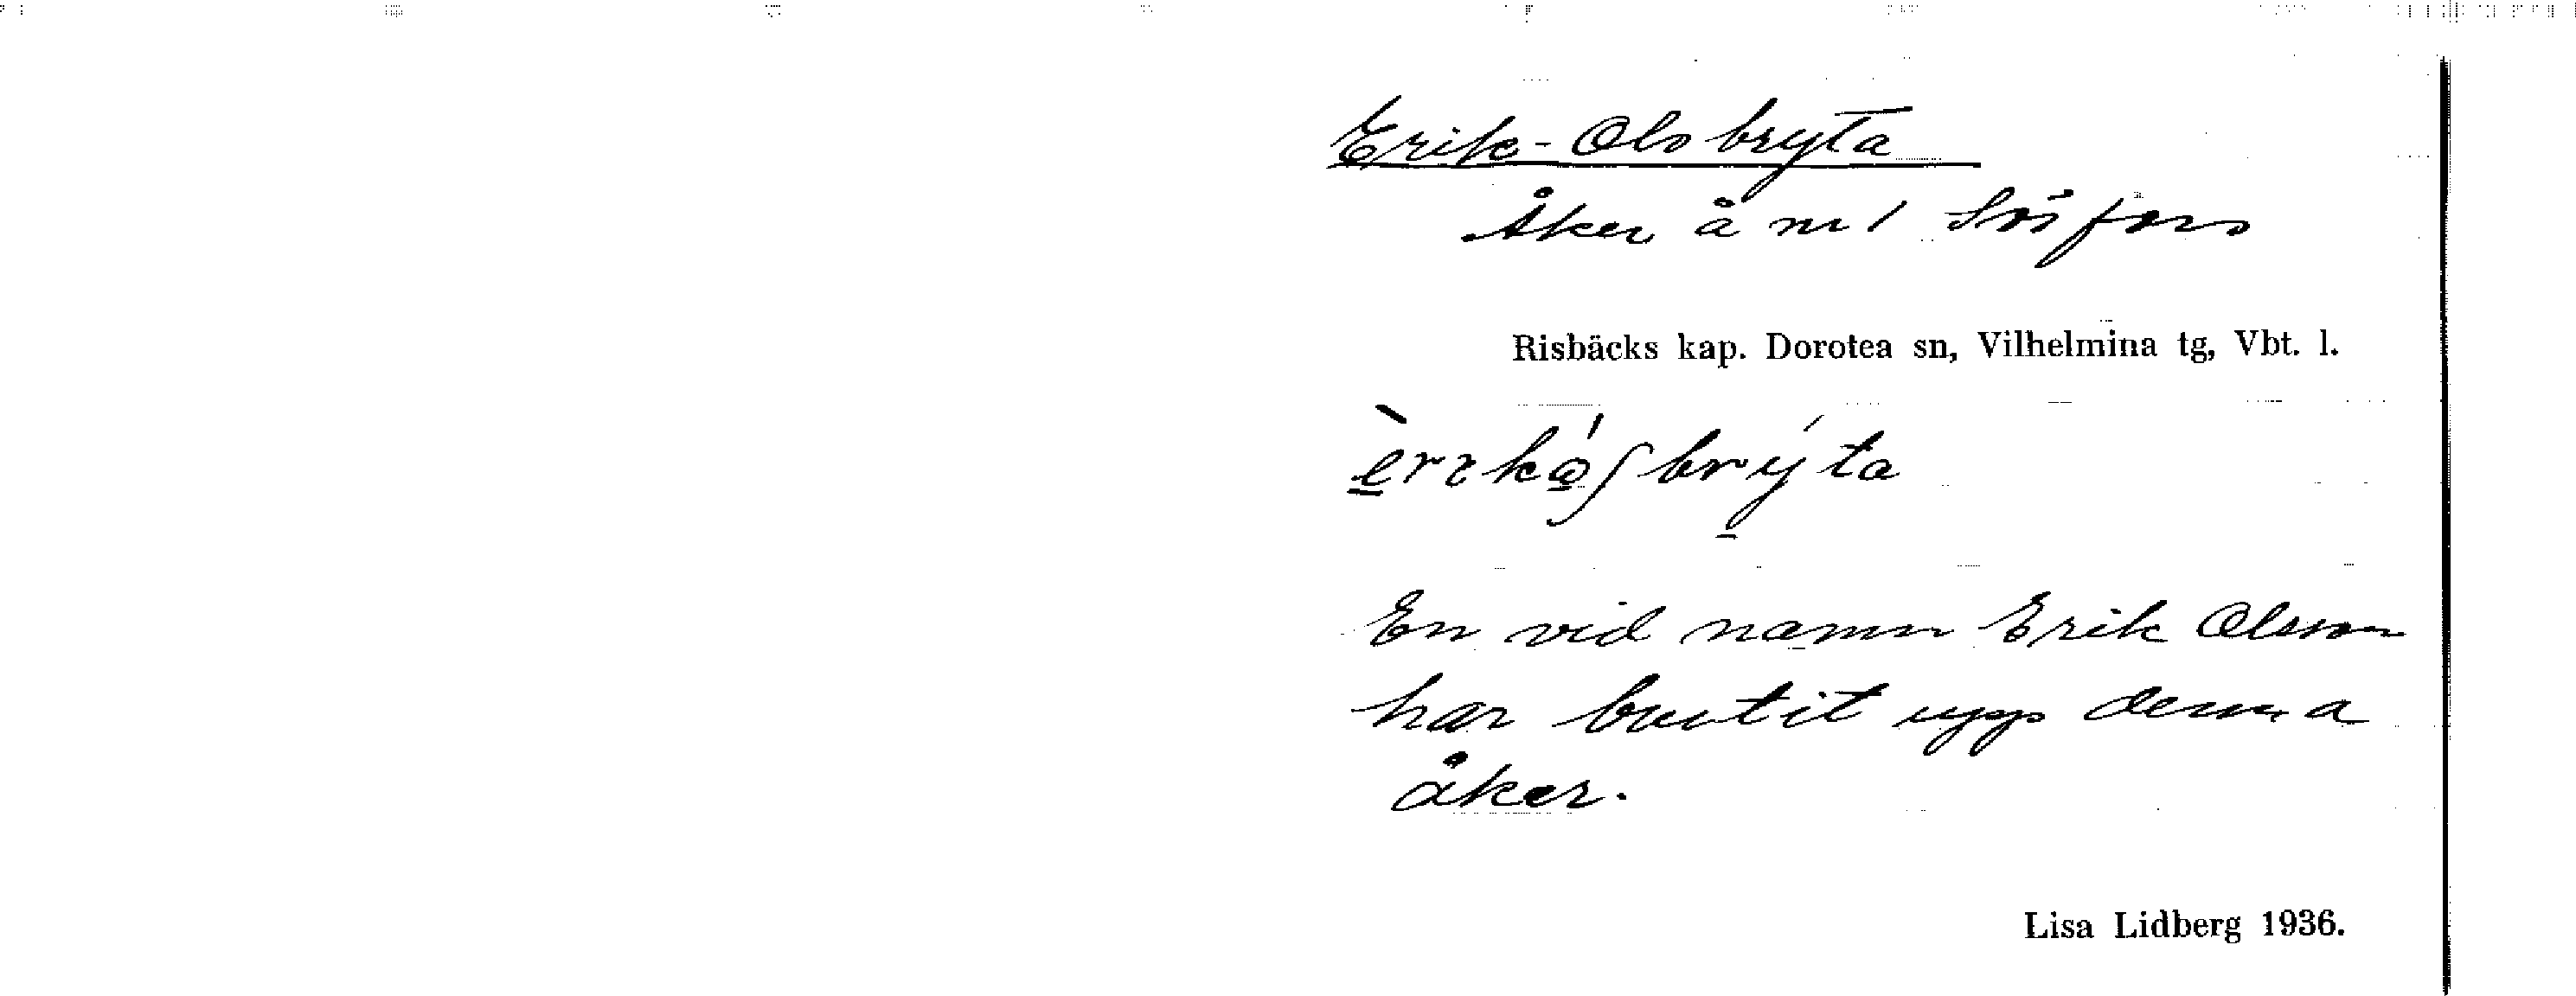 Erik-Olsbryta
Åker å nr 1
Risbäcks kap. Dorotea sn, Vilhelmina tg, Vbt. l.
En vid namn Erik Olsson
har brutit upp denna
åker.
Lisa Lidberg 1936.